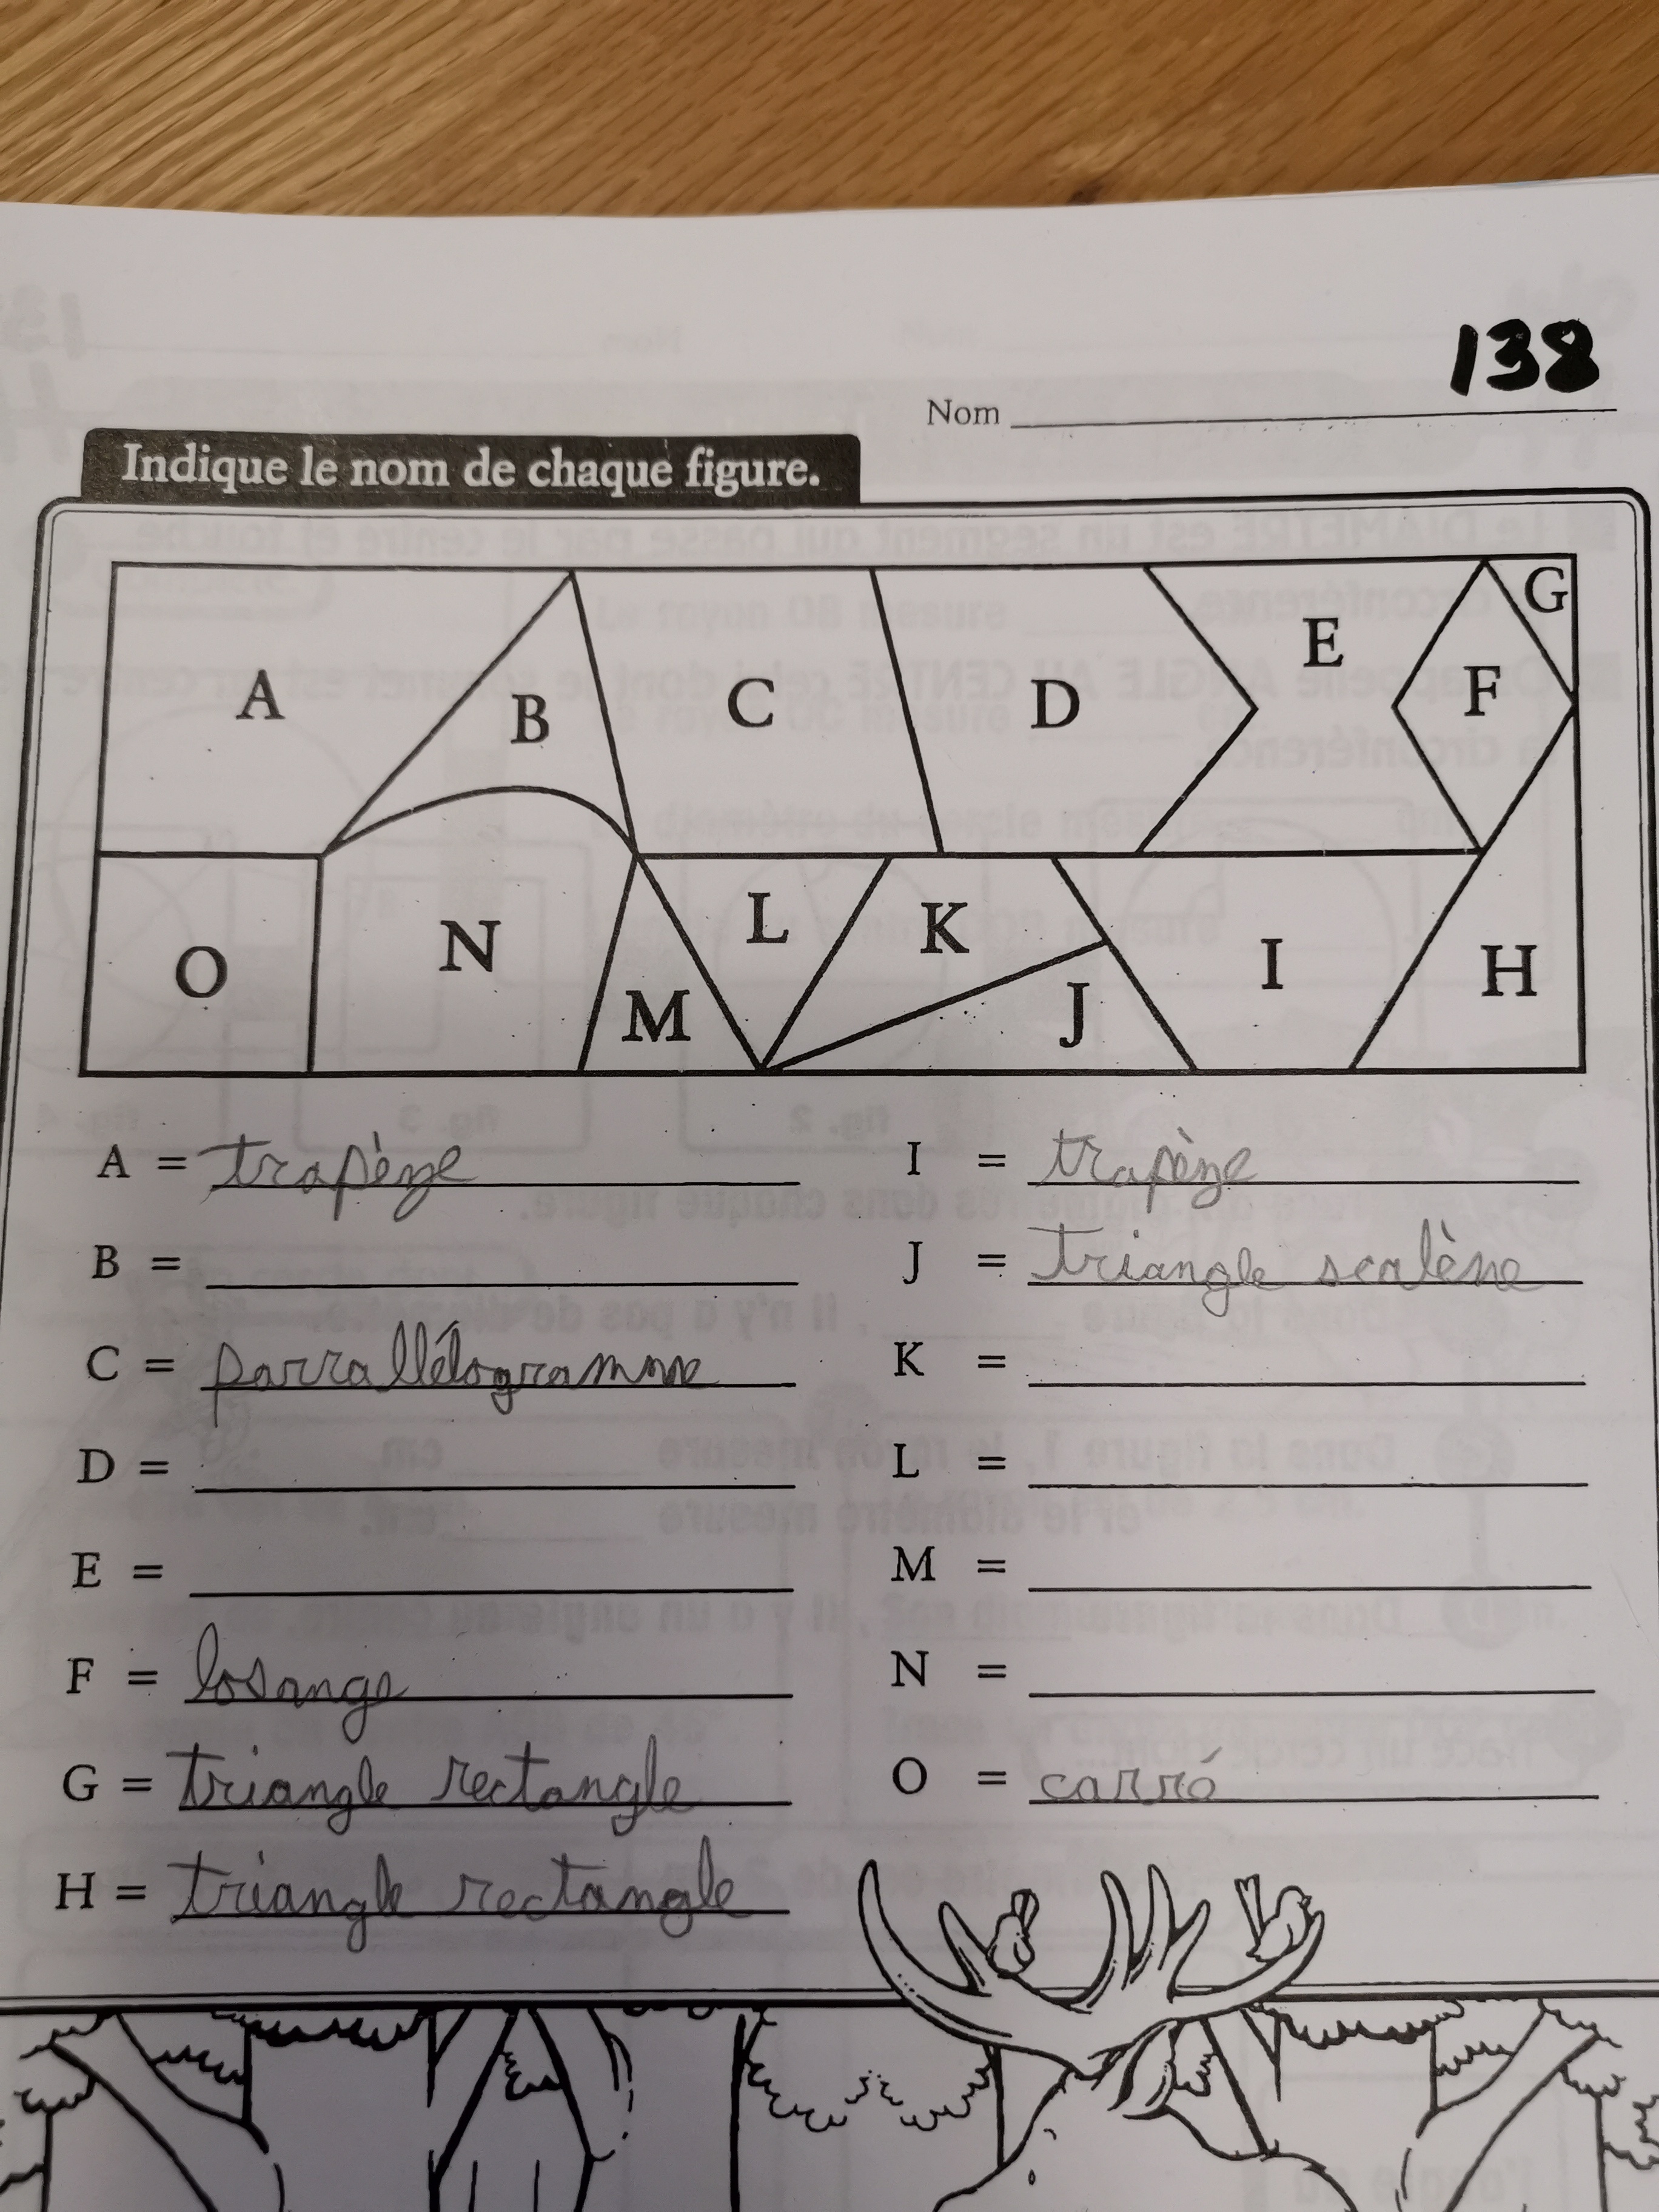 138
Nom
Indique le nom de chaque figure.
A
B
C
D
E
F
G
O
N
M
L
K
J
I
H
A = trapèze
B =
C = parrallélogramme
D =
E =
F = losange
G = triangle rectangle
H = triangle rectangle
I = trapèze
J = triangle scalène
K =
L =
M =
N =
O = carré